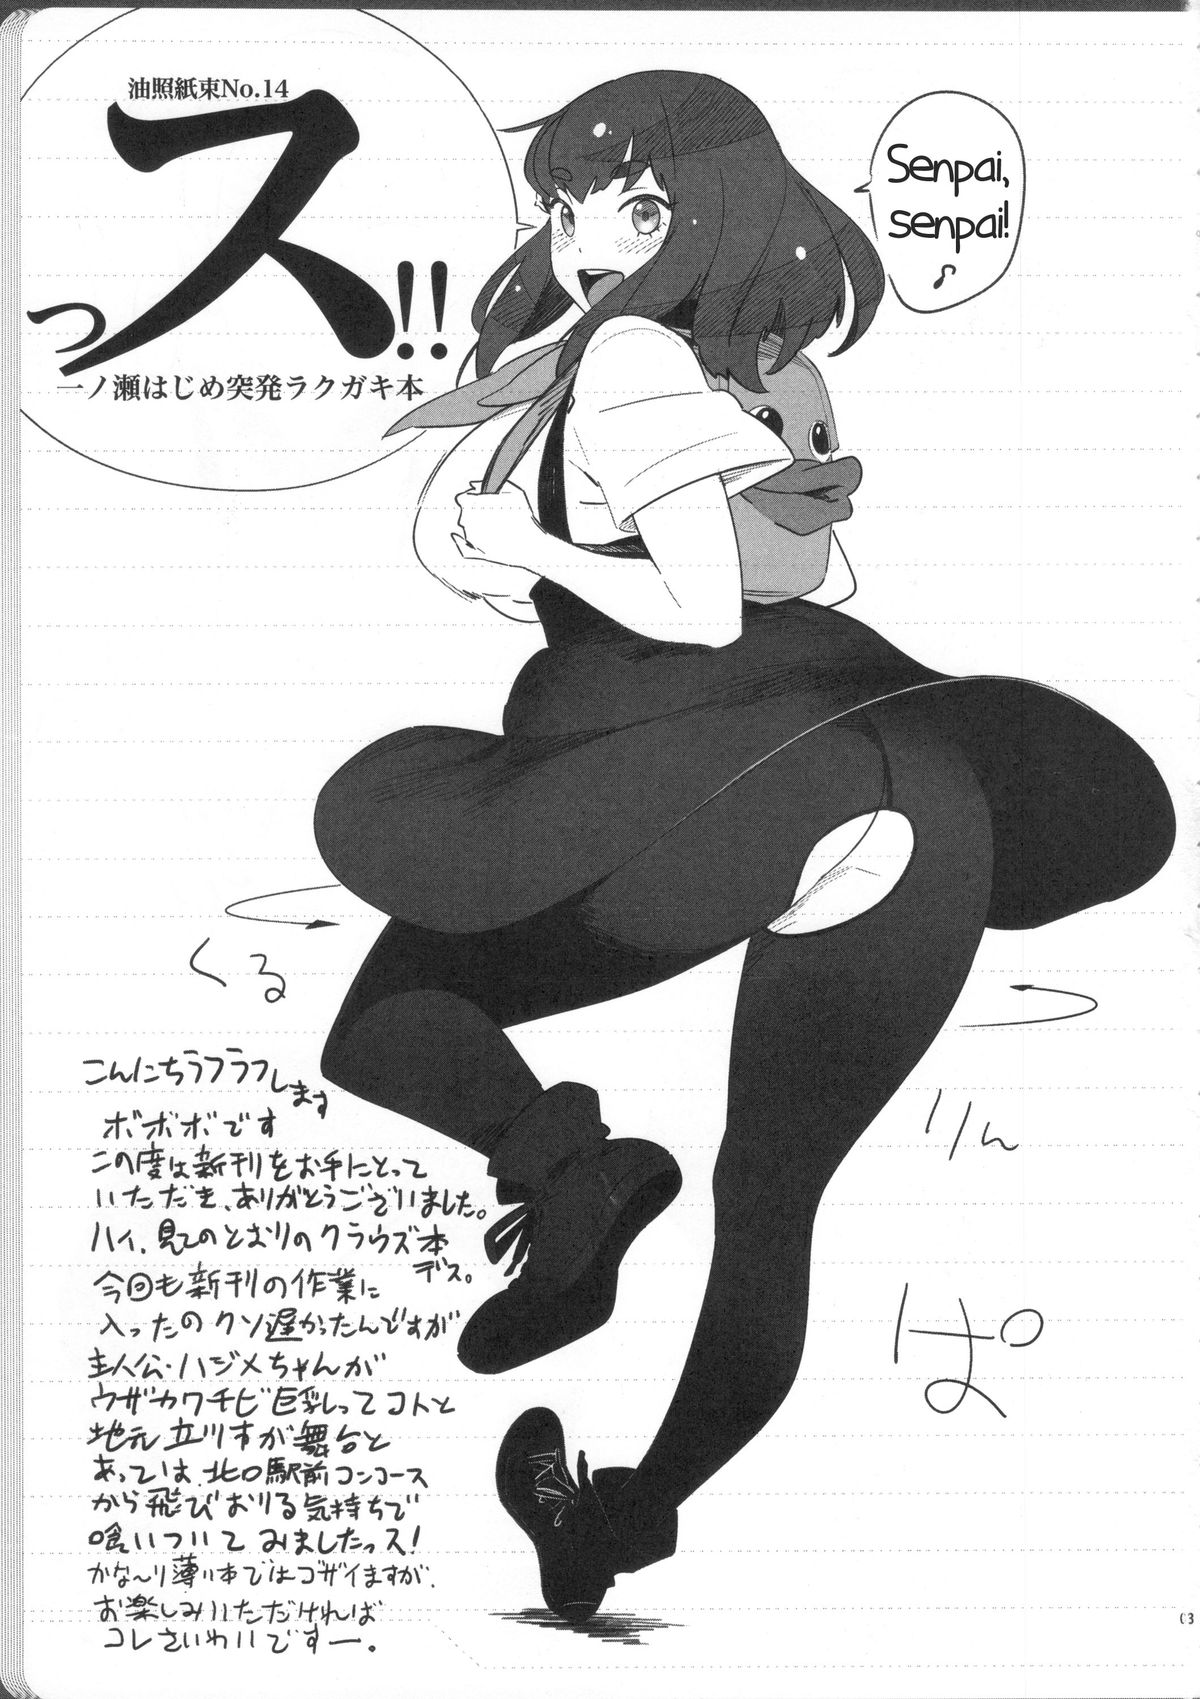 油照紙束No.14
っス!!
一ノ瀬はじめ突発ラクガキ本
Senpai,
senpai!
♪
くる
りん
ぱ
こんにちラフラフします
ボボボです
この度は新刊をお手にとって
いただき、ありがとうございました。
ハイ、見てのとおりのクラウズ本
デス。
今回も新刊の作業に
入ったのクソ遅かったんですが
主人公・ハジメちゃんが
ウザカワチビ巨乳しってコトと
地元立川市が舞台と
あっては、北口駅前コンコース
から飛びおりる気持ちで
喰いついてみましたっス!
かな〜り薄い本ではゴザイますが、
お楽しみいただければ
コレさいわいですー。
03